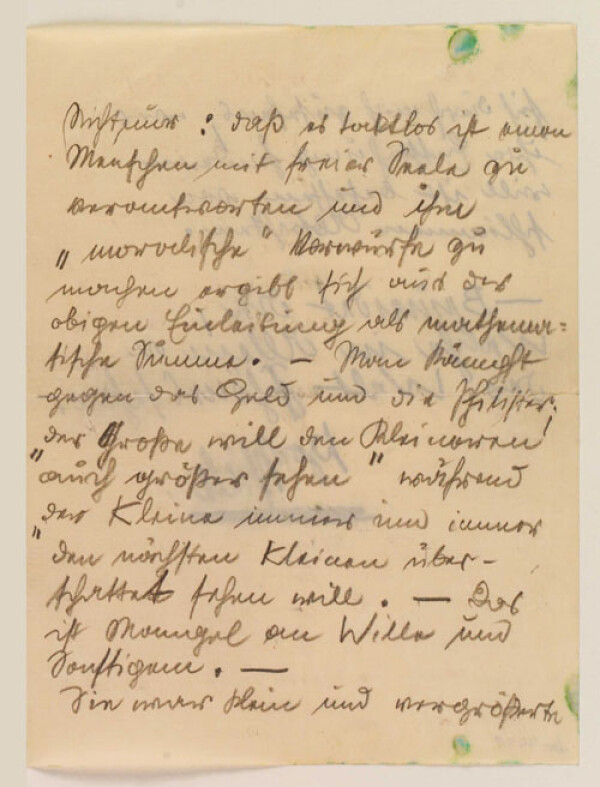 Nicht nur : daß es taktlos ist einen
Menschen mit freier Seele zu
verantworten und ihm
„ moralische " Vorwürfe zu
machen ergibt sich aus der
obigen Einleitung als mathema=
tische Summe. — Man kämpft
gegen das Geld und die Philister,
„der Große will den Kleineren!
auch größer sehen " während
„der Kleine immer und immer
den nächsten Kleinen über-
schattet sehen will. — Das
ist Mangel an Wille und
Sonstigem. —
Sie war klein und vergrößerte